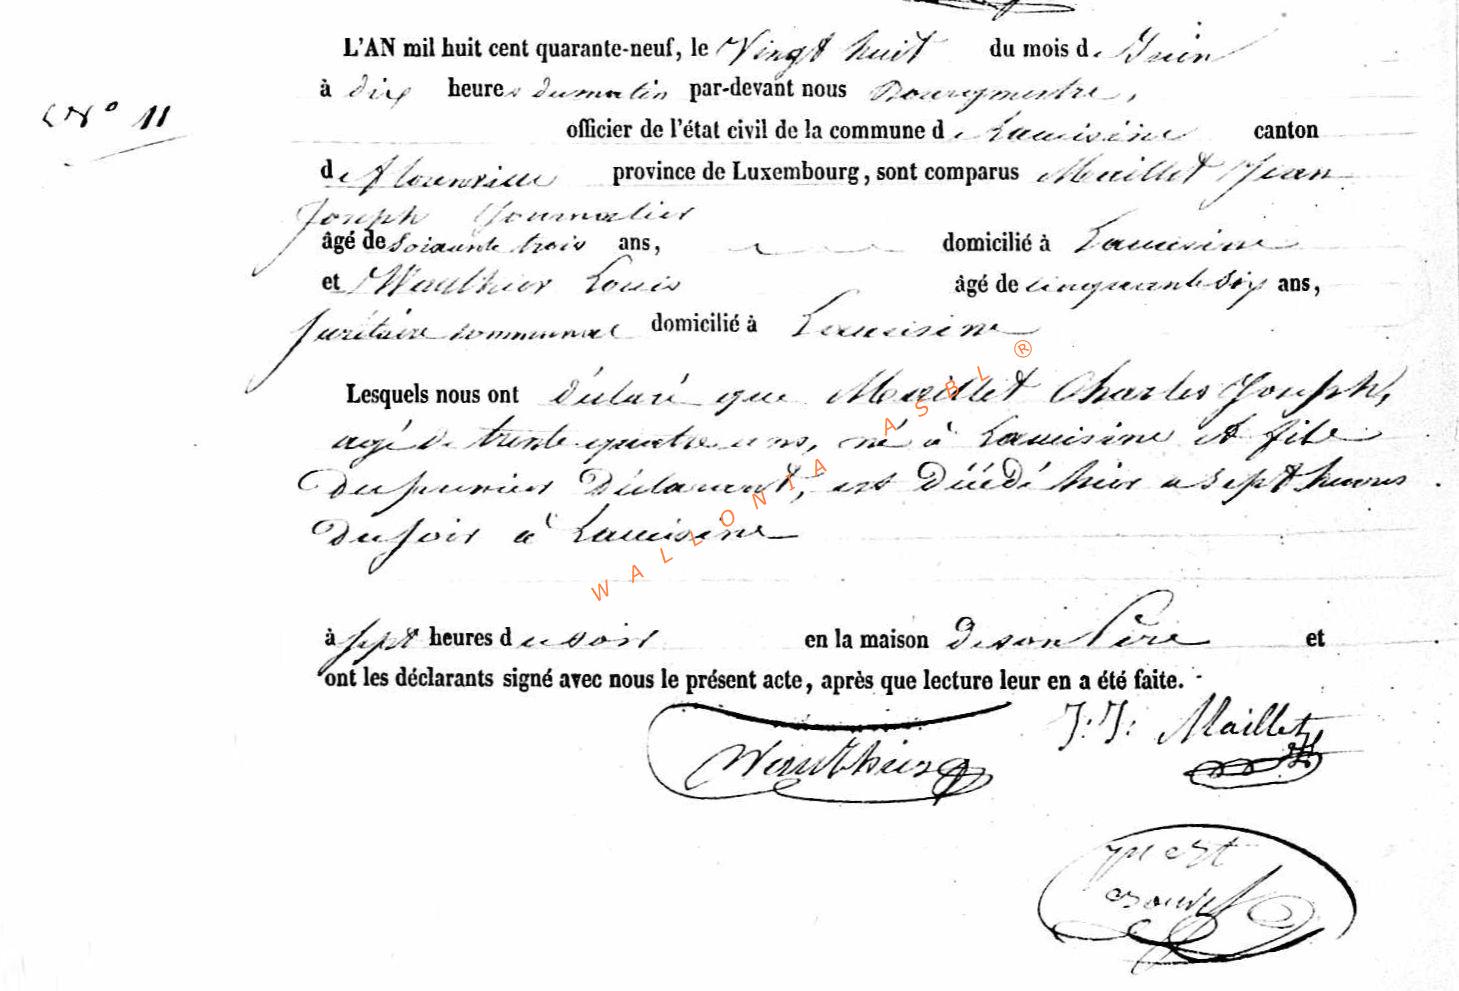 L'AN mil huit cent quarante-neuf, le Vingt huit du mois de Juin
à dix heures du matin par-devant nous Bourgmestre,
N° 11
officier de l'état civil de la commune de Lacuisine canton
de Florenville province de Luxembourg, sont comparus Maillet Jean
Joseph Journalier
âgé de Soixante trois ans, domicilié à Lacuisine
et Wauthier Louis âgé de cinquante six ans,
secrétaire communal domicilié à Lacuisine
Lesquels nous ont déclaré que Maillet Charles Joseph,
agé de trente quatre ans, né à Lacuisine et fils
Du premier Déclarant, est Décédé hier a sept heures
Du soir à Lacuisine
à sept heures du soir en la maison De son Père et
ont les déclarants signé avec nous le présent acte, après que lecture leur en a été faite.
J. J. Maillet
Wauthier
WALLONIA ASBL ®